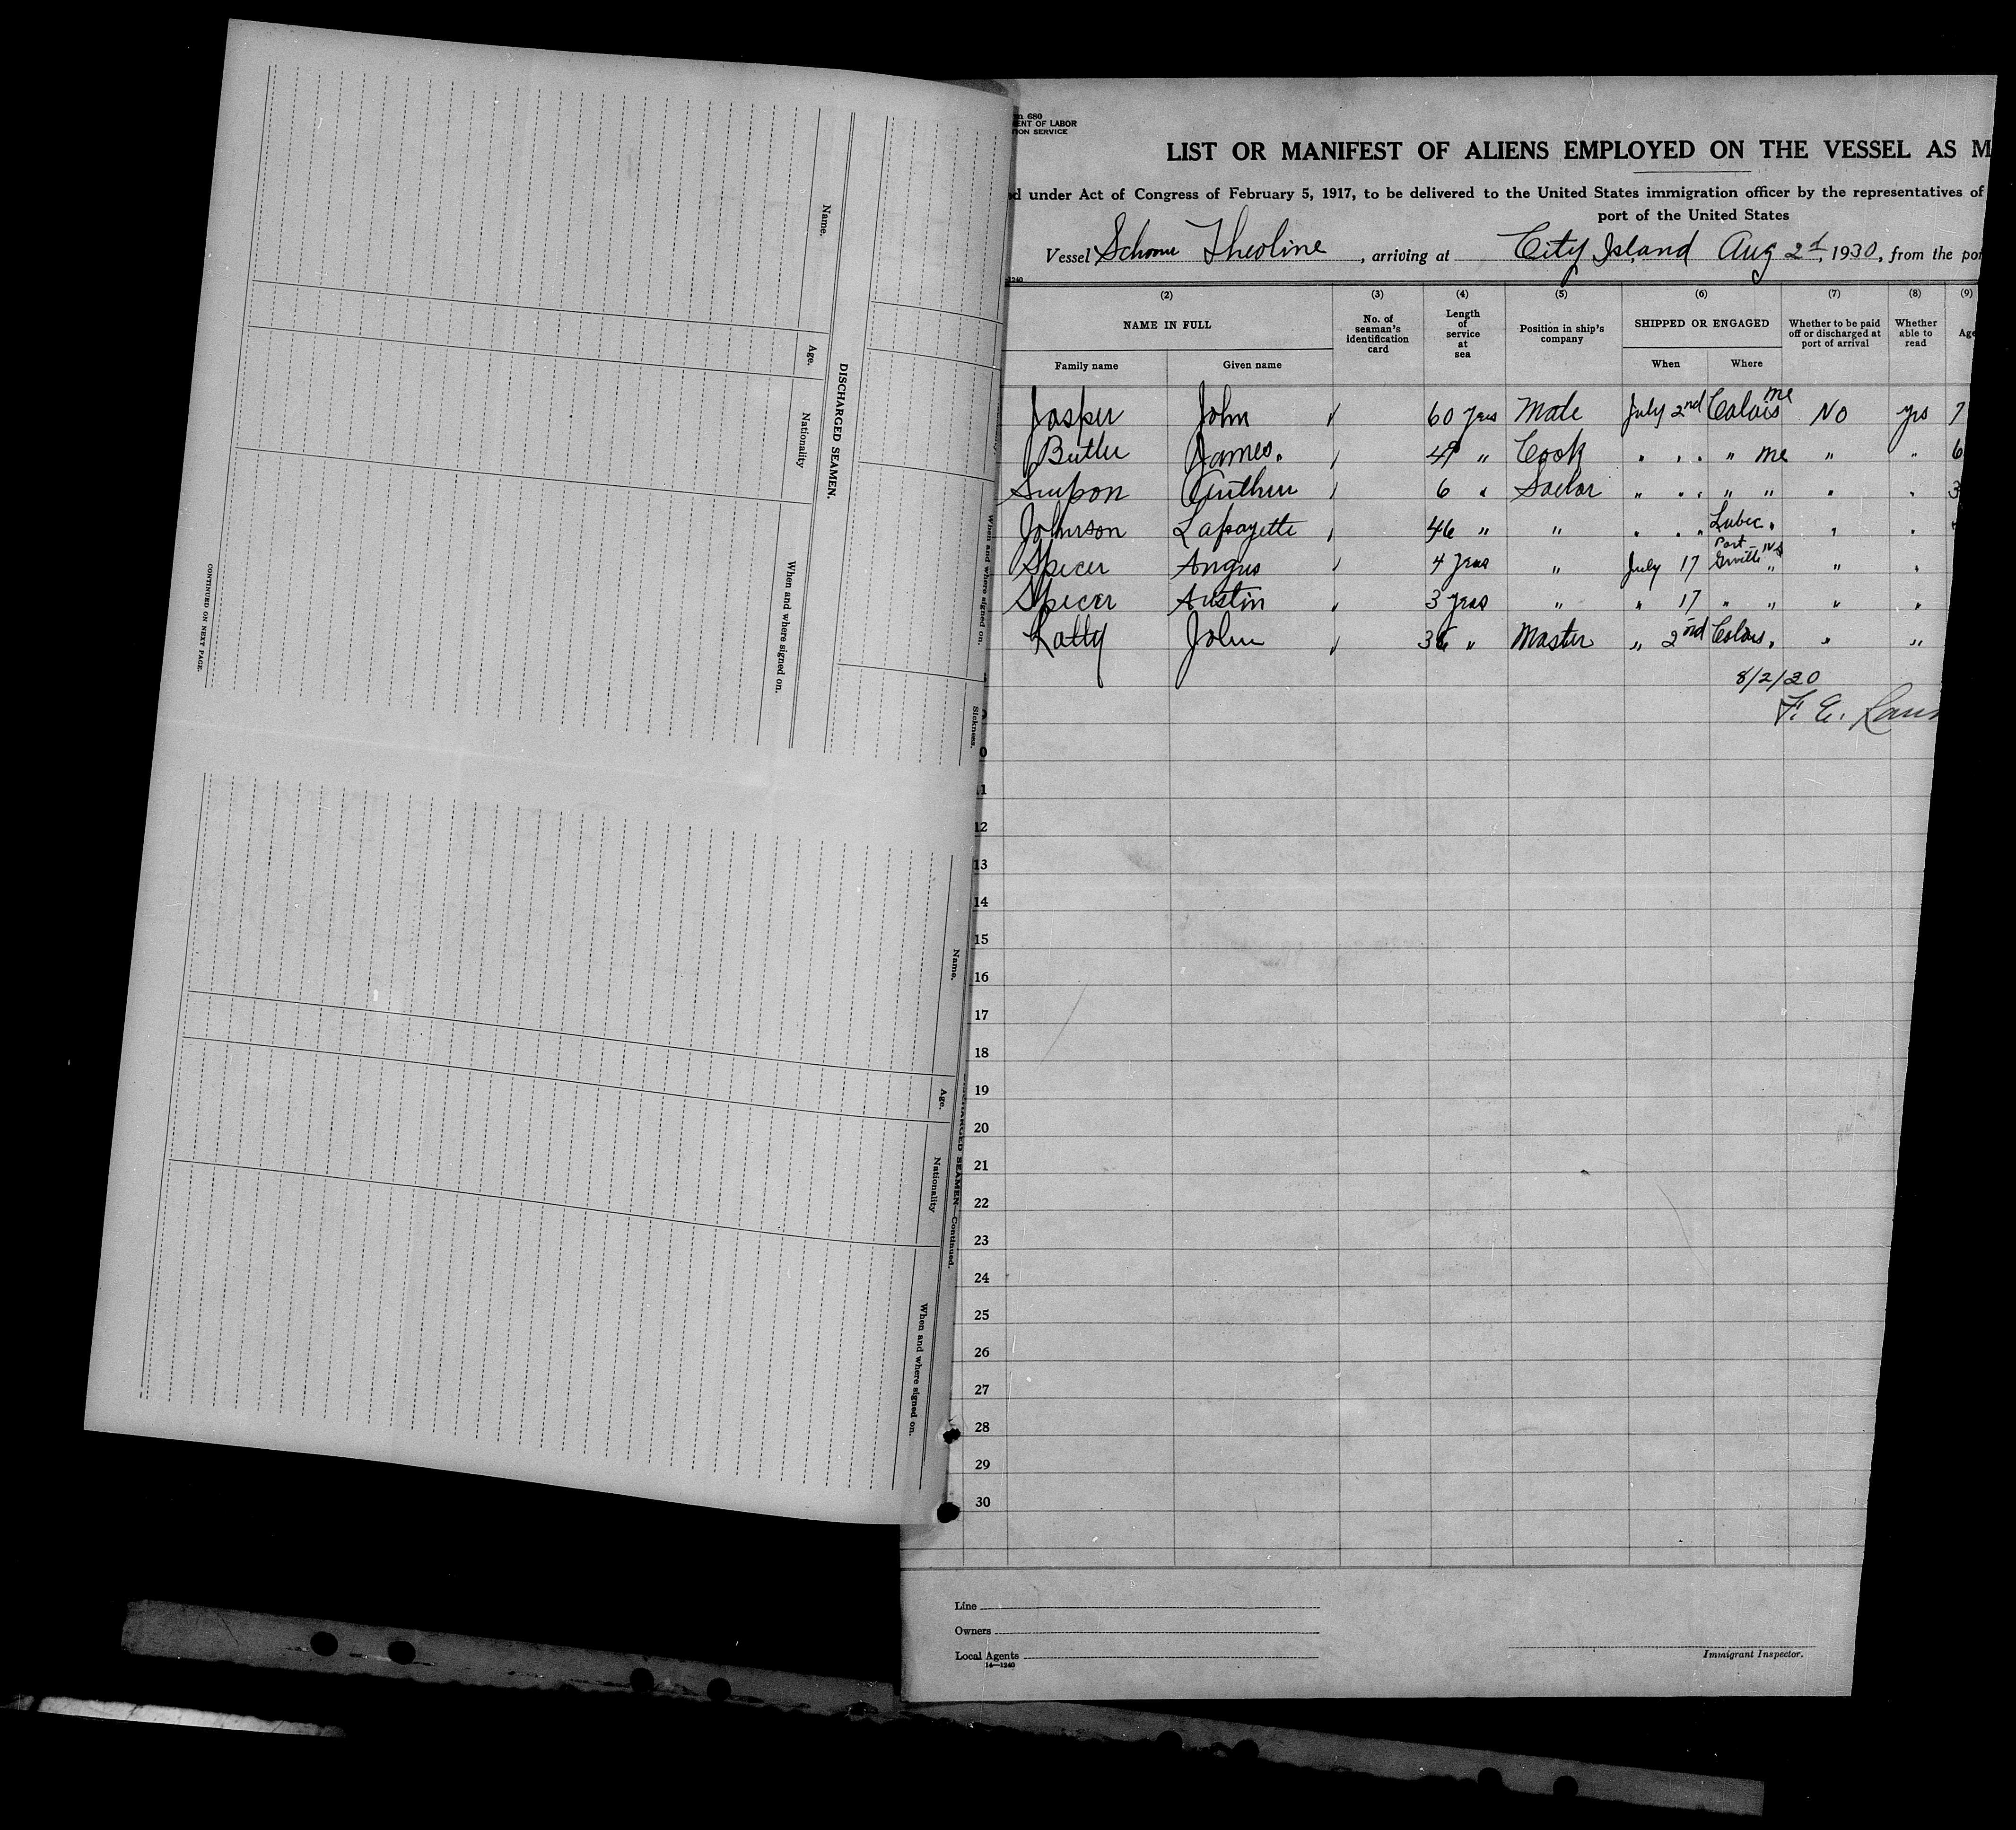 Name.
Age.
Nationality
When and where signed on.
DISCHARGED SEAMEN.
When and where signed on.
Sickness.
CONTINUED ON NEXT PAGE.
Name.
Age.
Nationality
When and where signed on.
DISCHARGED SEAMEN—Continued.
680
MENT OF LABOR
TION SERVICE
LIST OR MANIFEST OF ALIENS EMPLOYED ON THE VESSEL AS M
d under Act of Congress of February 5, 1917, to be delivered to the United States immigration officer by the representatives of
port of the United States
Vessel Theoline, arriving at City Island Aug 2d, 1930, from the por
1240
(2) (3) (4) (5) (6) (7) (8) (9)
NAME IN FULL No. of seaman's identification card Length of service at sea Position in ship's company SHIPPED OR ENGAGED Whether to be paid off or discharged at port of arrival Whether able to read Age
Family name Given name When Where
Jasper John 60 yrs Mate July 2nd Calais Me No yes 7
Butler James. 49 " Cook " " " " Me " " 6
Simpson 6 " Sailor " " " " " " " 3
Johnson Lafayette 46 " " " " " Lubec " " "
Spicer Angus 4 yrs " July 17 Port Greville NS " " "
Spicer Austin 3 yrs " " 17 " " " "
John 36 " Master " 2nd Calais " " "
8/2/30
F. E.
0
11
12
13
14
15
16
17
18
19
20
21
22
23
24
25
26
27
28
29
30
Line
Owners
Local Agents
14—1240
Immigrant Inspector.